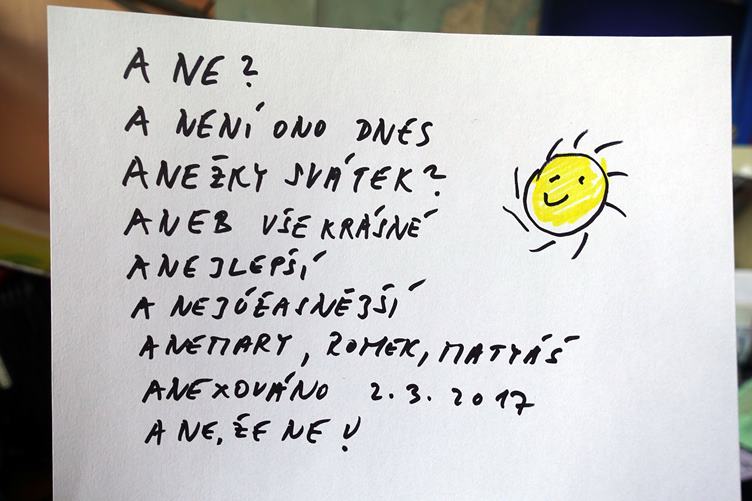 A NE?
A NENÍ ONO DNES
ANEŽKY SVÁTEK?
ANEB VŠE KRÁSNÉ
A NEJLEPŠÍ
A NEJÚŽASNĚJŠÍ
ANEMARY, ROMEK, MATYÁŠ
ANEXOVÁNO 2.3.2017
A NE, ŽE NE!